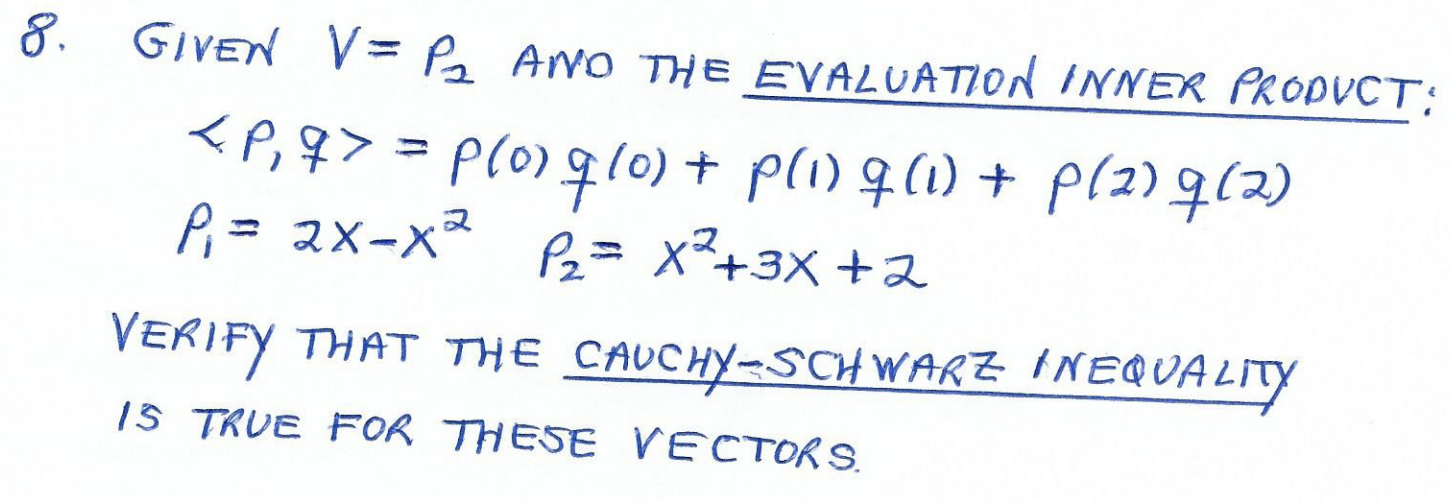 8. GIVEN V = P₂ AND THE EVALUATION INNER PRODUCT:
<p,q> = p(0)q(0) + p(1)q(1) + p(2)q(2)
P₁ = 2X-X² P₂ = X²+3X+2
VERIFY THAT THE CAUCHY-SCHWARZ INEQUALITY
IS TRUE FOR THESE VECTORS.